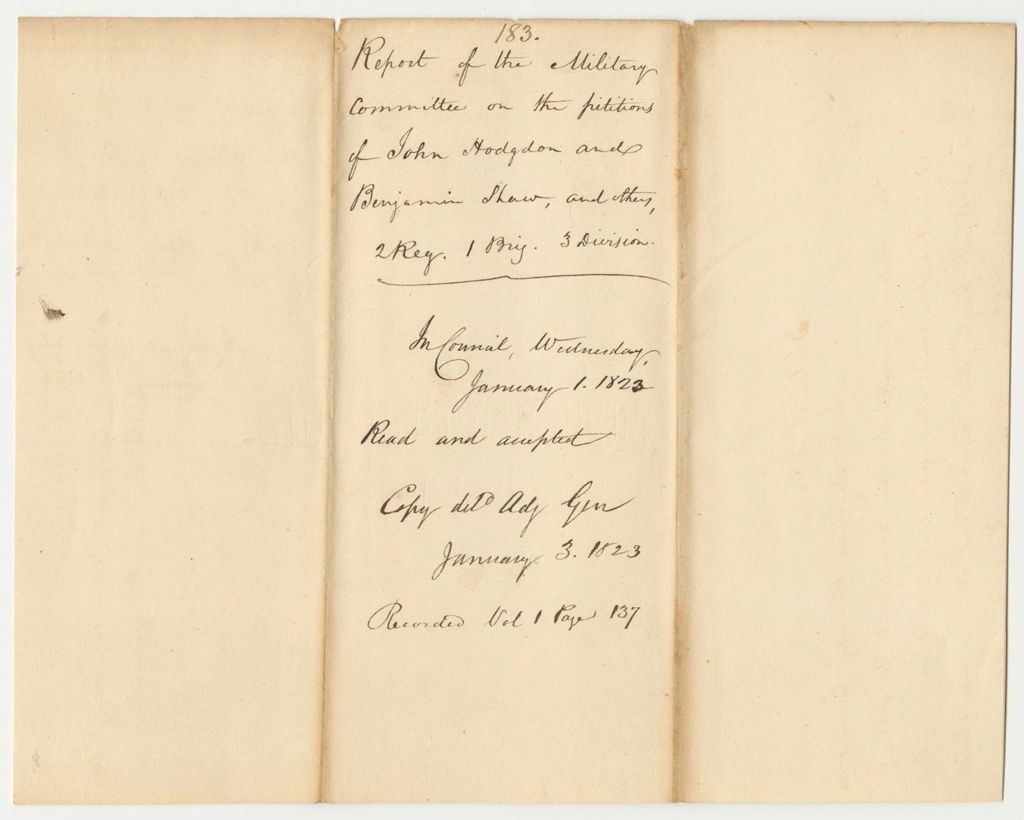 183.
Report of the Military
Committee on the petitions
of John Hodgdon and
Benjamin Shaw, and others,
2 Reg. 1 Brig. 3 Division.
In Council, Wednesday,
January 1. 1823
Read and accepted
Copy deld Adj Gen
January 3. 1823
Recorded Vol 1 Page 137